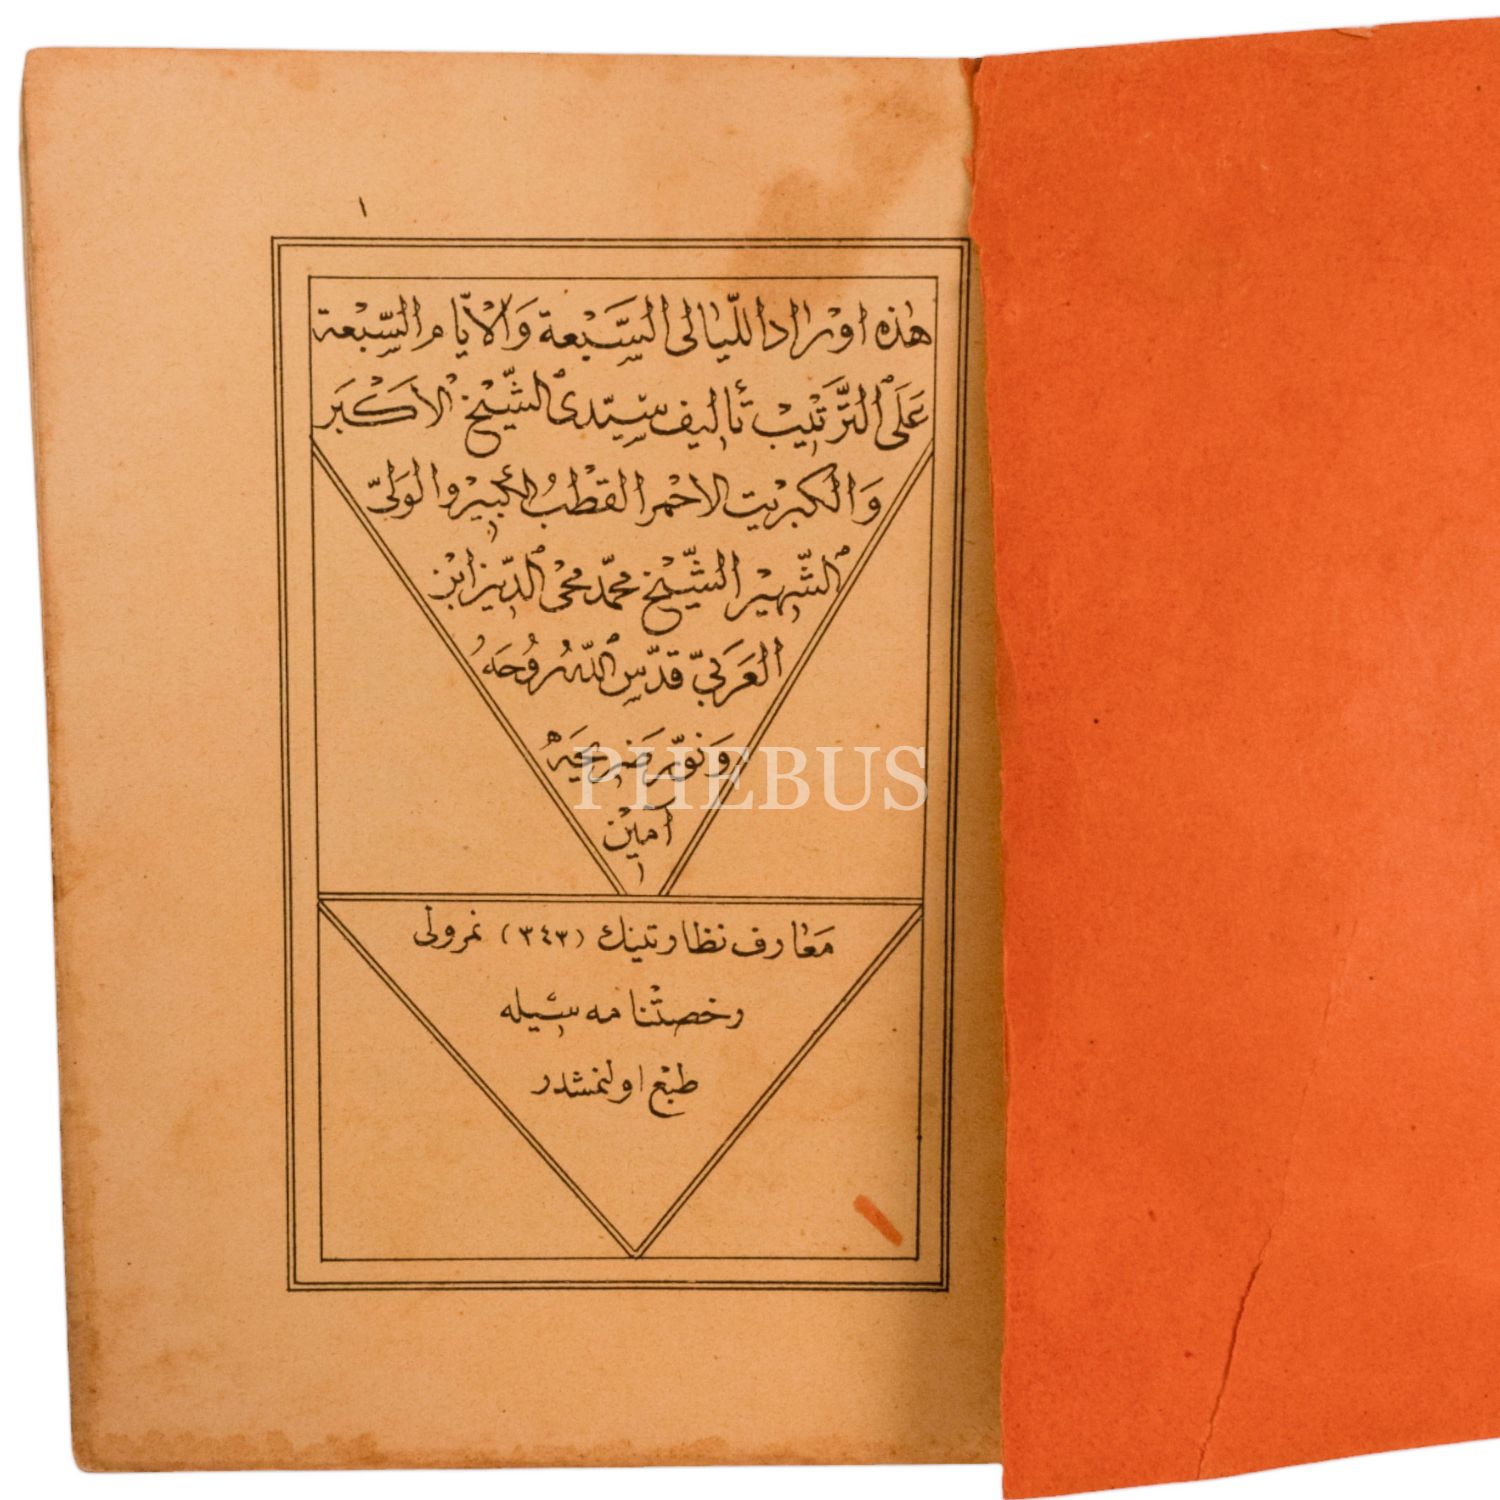 ١
هٰذه اوْرَاد اللّيَالى السَّبْعة وَالْاَيّام السّبْعة
عَلَى التَّرتيْبِ تأليف سيّدى الشّيْخ الأكْبَر
وَالكبريْت الاحْمر القطْبُ الكبيْر والوَلىّ
الشّهيْر الشّيْخ محمّد محْى الدّين ابْن
العَرَبىّ قدّس اللّهُ رُوحَهُ
وَنوّر ضَريحَهُ
آميْن
١
مَعارف نظارتينك (٣٤٣) نمرولى
رخصتنامه سيله
طبْع اولنمشدر
PHEBUS